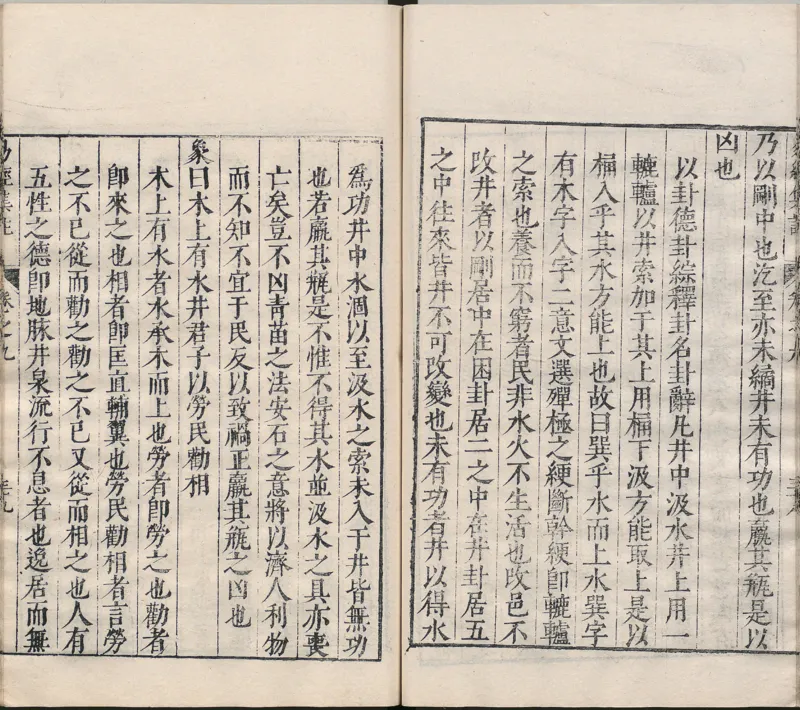 乃以剛中也汔至亦未繘井未有功也羸其瓶是以
凶也
以卦德卦綜釋卦名卦辭凡井中汲水井上用一
轆轤以井索加于其上用桶下汲方能取上是以
桶入乎其水方能上也故曰巽乎水而上水巽字
有木字入字二意文選殫極之綆斷幹綆即轆轤
之索也養而不窮者民非水火不生活也改邑不
改井者以剛居中在困卦居二之中在井卦居五
之中往來皆井不可改變也未有功者井以得水
爲功井中水涸以至汲水之索未入于井皆無功
也若羸其瓶是不惟不得其水並汲水之具亦喪
亡矣豈不凶青苗之法安石之意將以濟人利物
而不知不宜于民反以致禍正羸其瓶之凶也
象曰木上有水井君子以勞民勸相
木上有水者水承木而上也勞者即勞之也勸者
即來之也相者即匡直輔翼也勞民勸相者言勞
之不已從而勸之勸之不已又從而相之也人有
五性之德即地脉井泉流行不息者也逸居而無
易經集註
卷之九